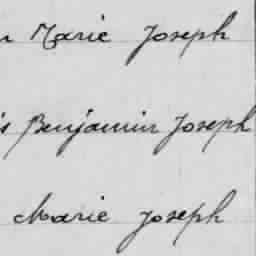 Marie Joseph
Benjamin Joseph
Marie Joseph